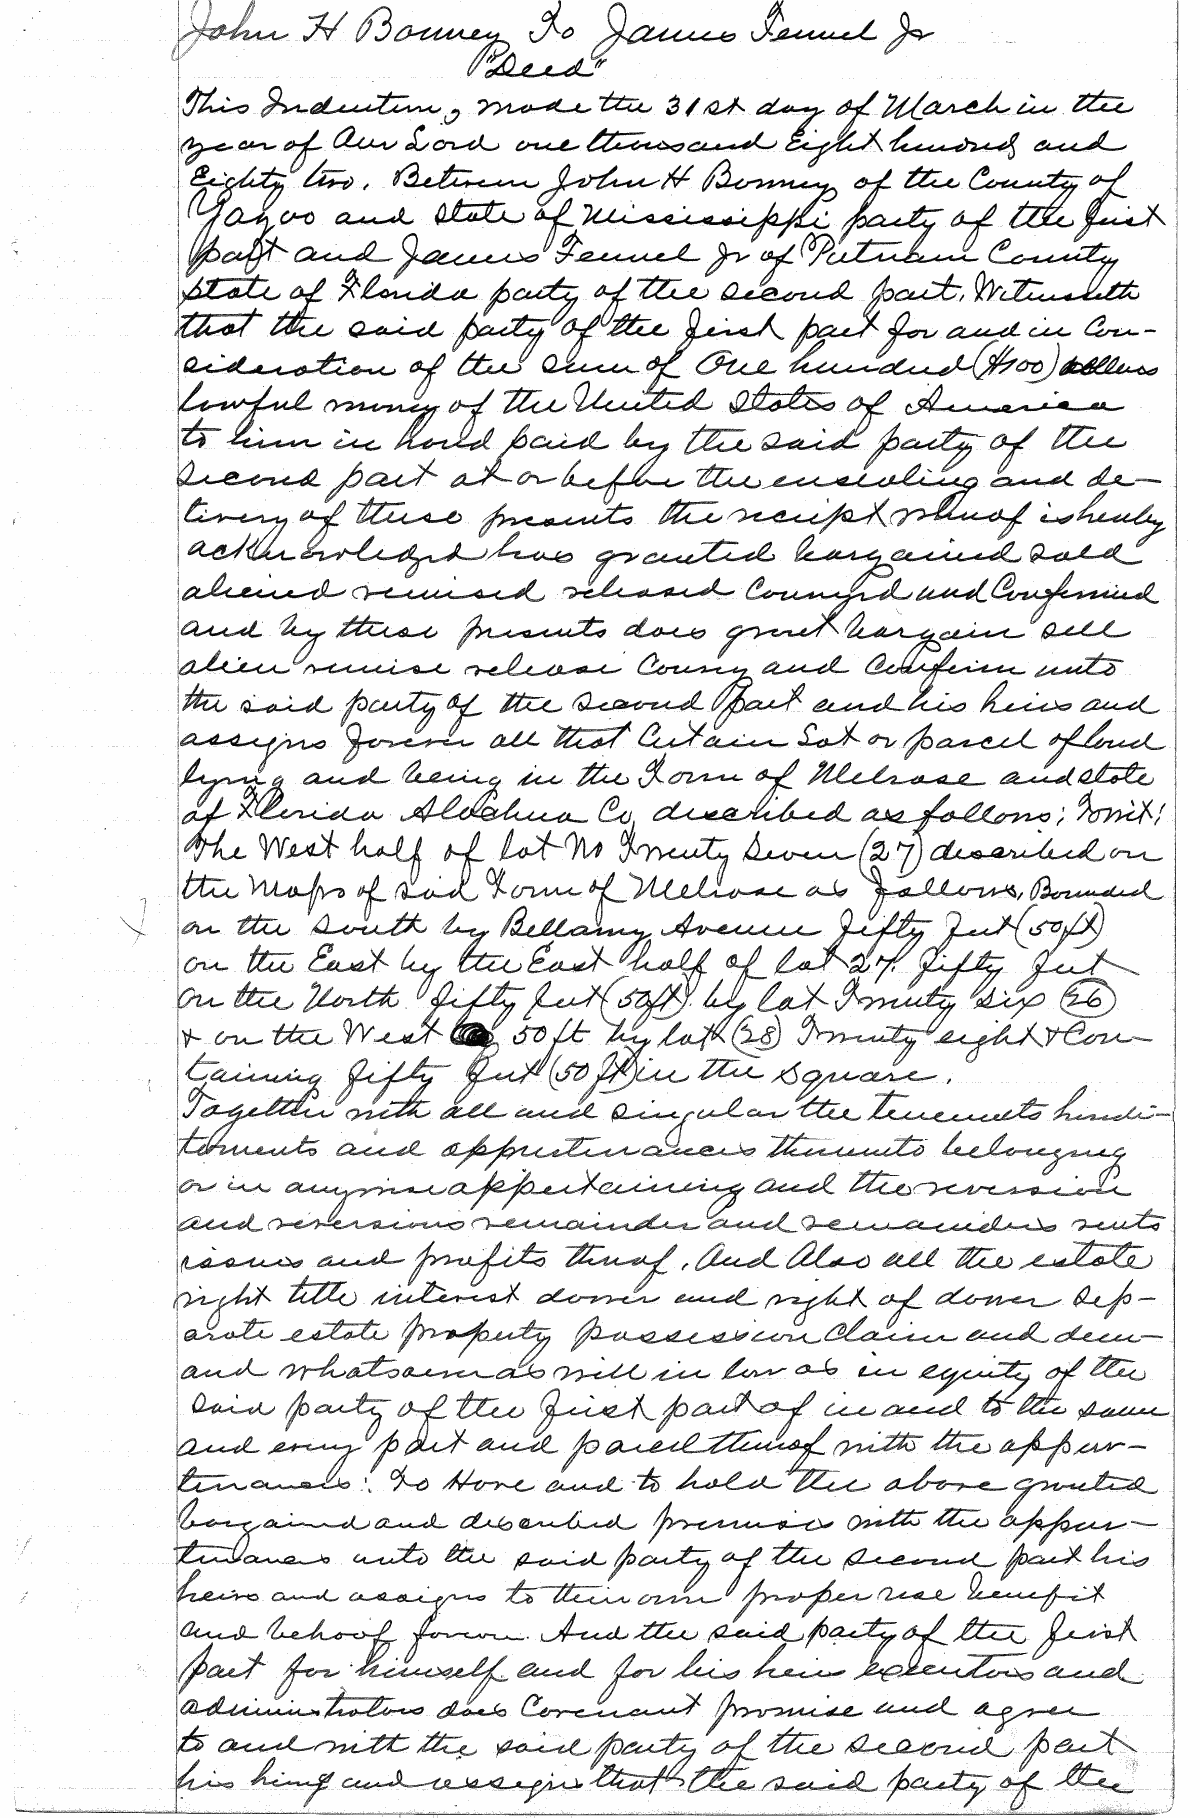 John H Bonney To James Fennel Jr
"Deed"
This Indenture, made the 31st day of March in the
year of Our Lord one thousand Eight hundred and
Eighty two. Between John H Bonney of the County of
Yazoo and State of Mississippi party of the first
part and James Fennel Jr of Putnam County
State of Florida party of the second part. Witnesseth
that the said party of the first part for and in Con-
sideration of the sum of One hundred ($100) dollars
lawful money of the United States of America
to him in hand paid by the said party of the
second part at or before the ensealing and de-
livery of these presents the receipt whereof is hereby
acknowledged has granted bargained sold
aliened remised released Conveyed and Confirmed
and by these presents does grant bargain sell
alien remise release Convey and Confirm unto
the said party of the second part and his heirs and
assigns forever all that Certain Lot or parcel of land
lying and being in the Town of Melrose and state
of Florida Alachua Co described as follows; Towit;
The West half of lot No Twenty Seven (27) described on
the Maps of said Town of Melrose as follows, Bounded
on the South by Bellamy Avenue fifty feet (50ft)
on the East by the East half of lot 27. fifty feet
on the North fifty feet (50ft) by lot Twenty six (26)
& on the West 50ft by lot (28) Twenty eight & Con-
taining fifty feet (50ft) in the square.
Together with all and singular the tenements heredi-
taments and appurtenances thereunto belonging
or in anywise appertaining and the reversion
and reversions remainder and remainders rents
issues and profits thereof. And Also all the estate
right title interest dower and right of dower Sep-
arate estate property possession Claim and dem-
and whatsoever as well in law as in equity of the
said party of the first part of in and to the same
and every part and parcel thereof with the appur-
tenances: To Have and to hold the above granted
bargained and described premises with the appur-
tenances unto the said party of the second part his
heirs and assigns to their own proper use benefit
and behoof forever. And the said party of the first
part for himself and for his heirs executors and
administrators does Covenant promise and agree
to and with the said party of the second part
his and assigns that the said party of the